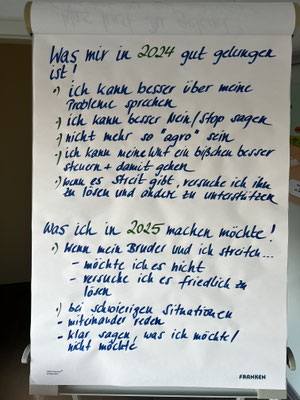 Was mir in 2024 gut gelungen
ist!
•) ich kann besser über meine
Probleme sprechen
•) ich kann besser Nein/Stop sagen
•) nicht mehr so "agro" sein
•) ich kann meine Wut ein bißchen besser
steuern + damit gehen
•) wenn es Streit gibt, versuche ich ihn
zu lösen und andere zu unterstützen
Was ich in 2025 machen möchte!
•) Wenn mein Bruder und ich streiten...
- möchte ich es nicht
- versuche ich es friedlich zu
lösen
•) bei schwierigen Situationen
- miteinander reden
- klar sagen, was ich möchte/
nicht möchte
FRANKEN